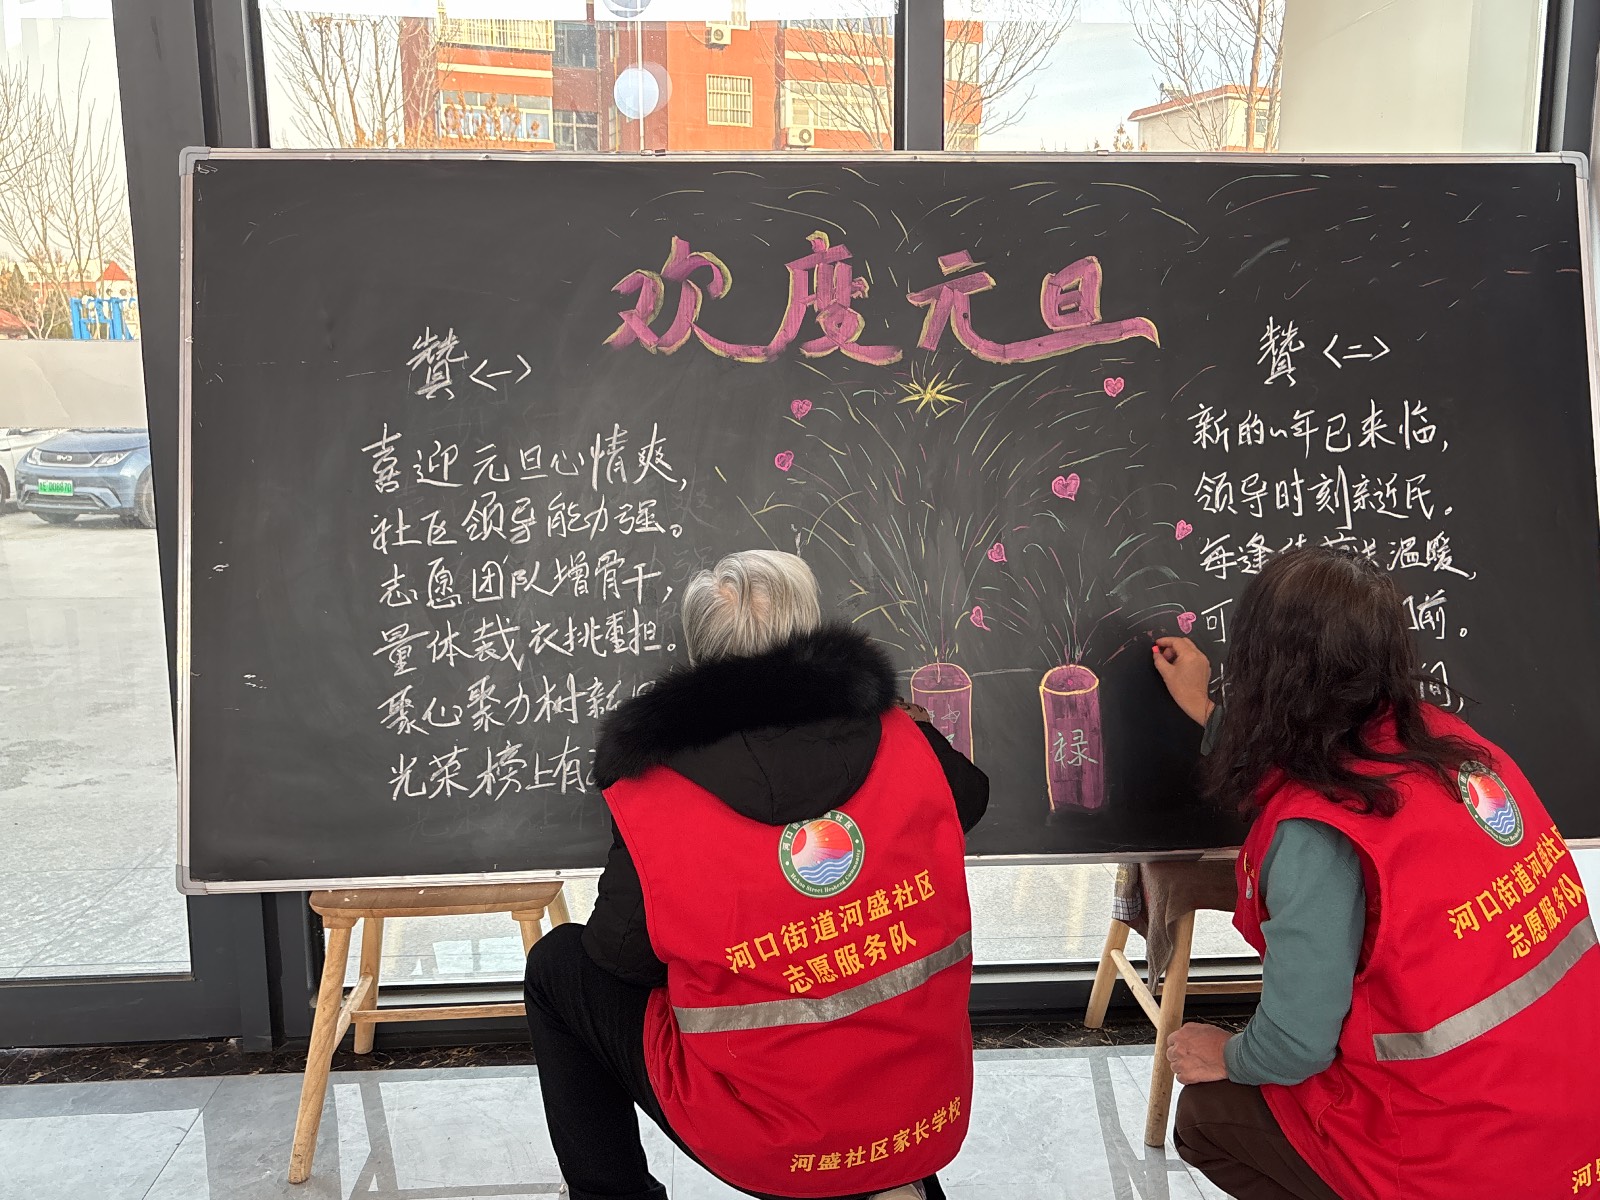 欢度元旦
赞〈一〉
喜迎元旦心情爽，
社区领导能力强。
志愿团队增骨干，
量体裁衣挑重担。
聚心聚力树新
光荣榜上有
赞〈二〉
新的一年已来临，
领导时刻亲近民。
每逢 温暖，
可 前。
间，
禄
河口街道河盛社区
志愿服务队
河盛社区家长学校
河口街道河盛社区
志愿服务队
河盛